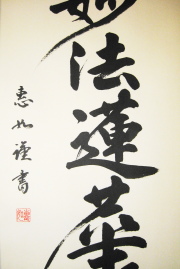 妙法蓮華
恵如謹書